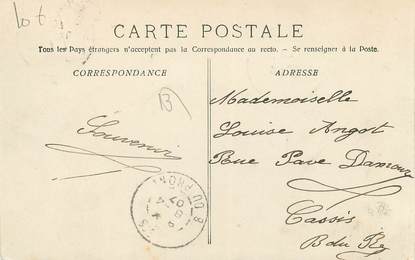 Lot
CARTE POSTALE
Tous les Pays étrangers n'acceptent pas la Correspondance au recto. — Se renseigner à la Poste.
CORRESPONDANCE
ADRESSE
B
Souvenir
Mademoiselle
Louise Angot
Rue Pave
Cassis
B du R